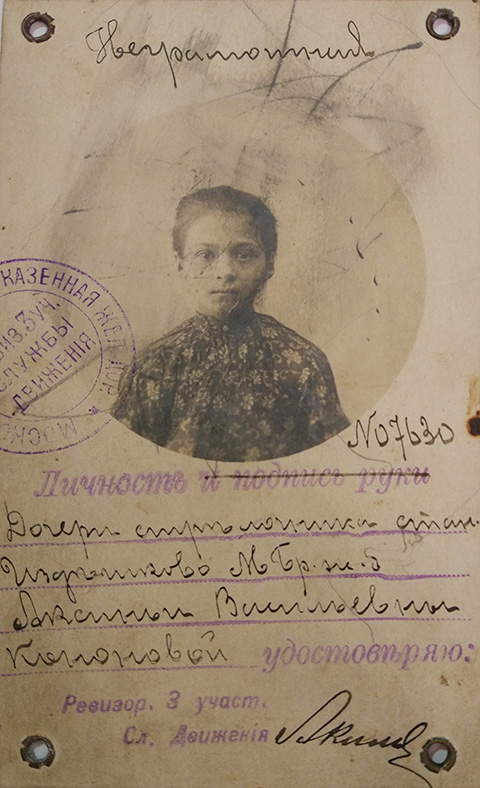 Неграмотная
КАЗЕННАЯ ЖЕЛ. ДОР.
З УЧ.
СЛУЖБЫ
ДВИЖЕНІЯ
№7630
Личность и подпись руки
Дочери стрѣлочника стан.
Издѣшково МБр. ж. д
Аксиньи Васильевны
Кононовой удостовѣряю:
Ревизор. 3 участ.
Сл. Движенія